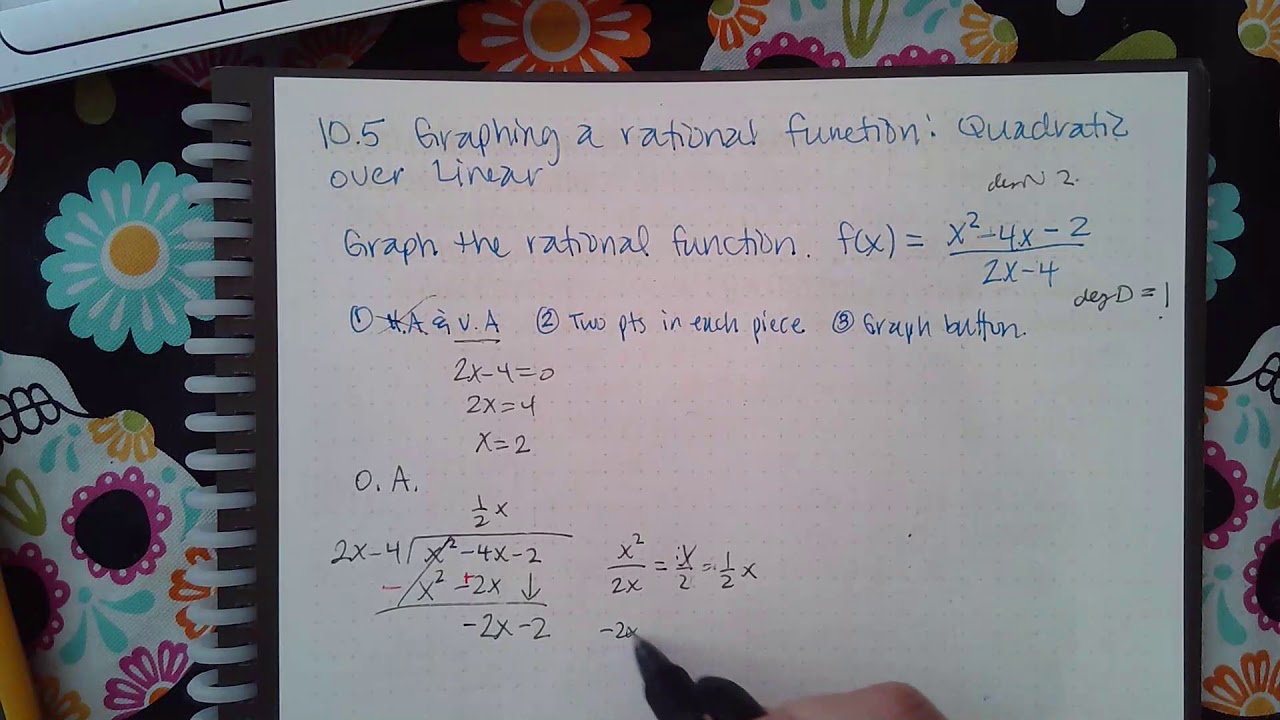 10.5 Graphing a rational function: Quadratic
over Linear
deg N 2.
Graph the rational function. f(x) = x²-4x-2 / 2x-4
deg D = 1
① H.A & V.A ② Two pts in each piece ③ Graph button.
2x-4=0
2x=4
x=2
O. A.
½x
2x-4 x²-4x-2 x²/2x = x/2 = ½x
- x² -+2x ↓
-2x-2 -2x